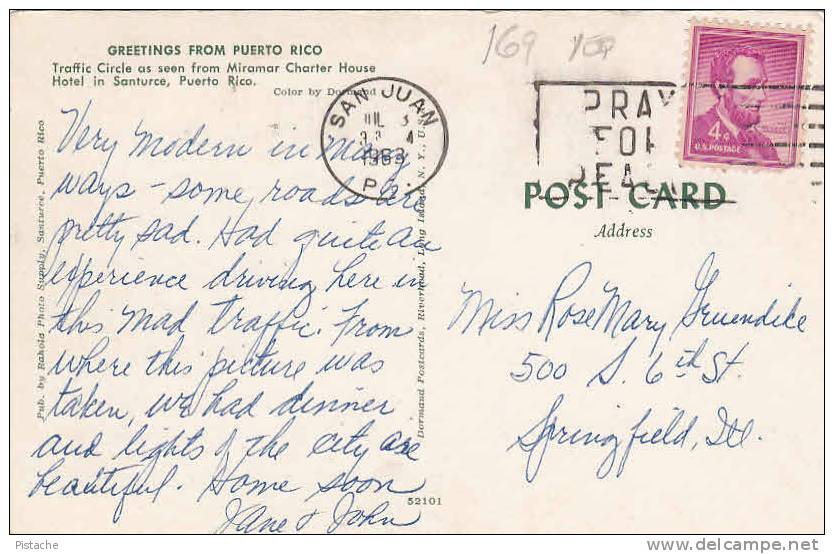 GREETINGS FROM PUERTO RICO
Traffic Circle as seen from Miramar Charter House
Hotel in Santurce, Puerto Rico.
Color by Dormand
Very modern in many
ways - some roads are
pretty sad. Had quite an
experience driving here in
this mad traffic. From
where this picture was
taken, we had dinner
and lights of the city are
beautiful. Home soon
Jane & John
Pub. by Rahola Photo Supply, Santurce, Puerto Rico
Dormand Postcards, Riverhead, Long Island, N. Y., U.S.A.
52101
169
SAN JUAN
JUL 3
4
P.
PRAY
FOR
PEAC
4¢
U.S. POSTAGE
POST CARD
Address
Miss RoseMary Gruendike
500 S. 6th St.
Springfield, Ill.
Pistache
www.delcampe.net